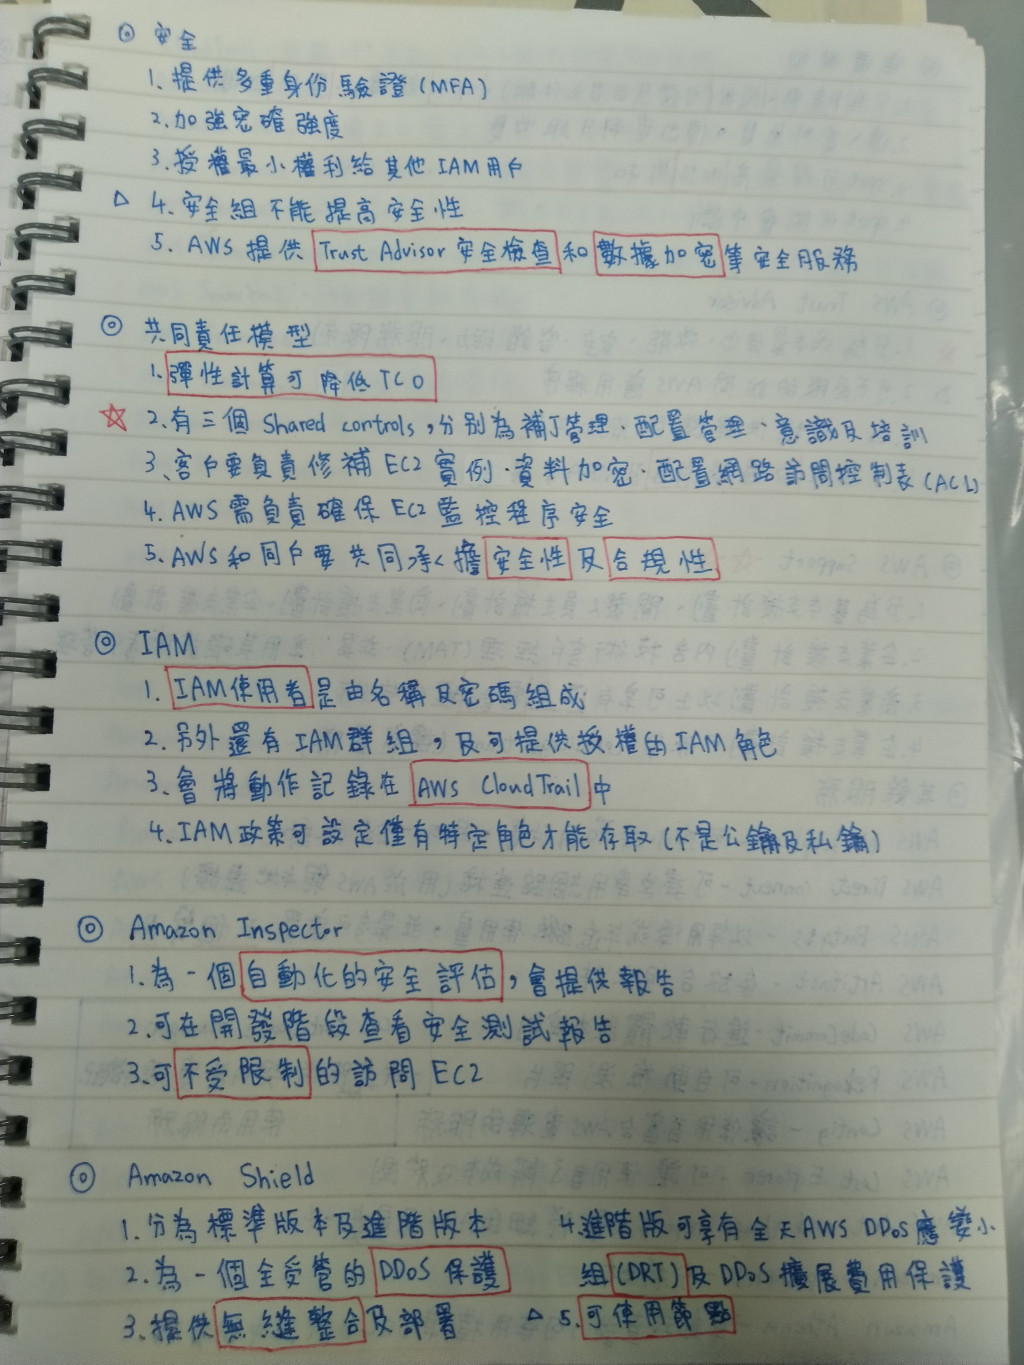 ◎ 安全
1. 提供多重身份驗證(MFA)
2. 加強密確強度
3. 授權最小權利給其他 IAM 用戶
△ 4. 安全組不能提高安全性
5. AWS 提供 Trust Advisor 安全檢查 和 數據加密 等安全服務
◎ 共同責任模型
1. 彈性計算可降低 TCO
☆ 2. 有三個 Shared controls,分別為補丁管理、配置管理、意識及培訓
3. 客戶要負責修補 EC2 實例、資料加密、配置網路訪問控制表(ACL)
4. AWS 需負責確保 EC2 監控程序安全
5. AWS 和同戶要共同承擔 安全性 及 合規性
◎ IAM
1. IAM使用者 是由名稱及密碼組成
2. 另外還有 IAM 群組,及可提供授權的 IAM 角色
3. 會將動作記錄在 AWS CloudTrail 中
4. IAM 政策可設定僅有特定角色才能存取(不是公鑰及私鑰)
◎ Amazon Inspector
1. 為一個 自動化的安全評估,會提供報告
2. 可在開發階段查看安全測試報告
3. 可 不受限制 的訪問 EC2
◎ Amazon Shield
1. 分為標準版本及進階版本
2. 為一個全受管的 DDoS 保護
3. 提供 無縫整合 及部署
4. 進階版可享有全天 AWS DDoS 應變小
組 (DRT) 及 DDoS 擴展費用保護
△ 5. 可使用節點